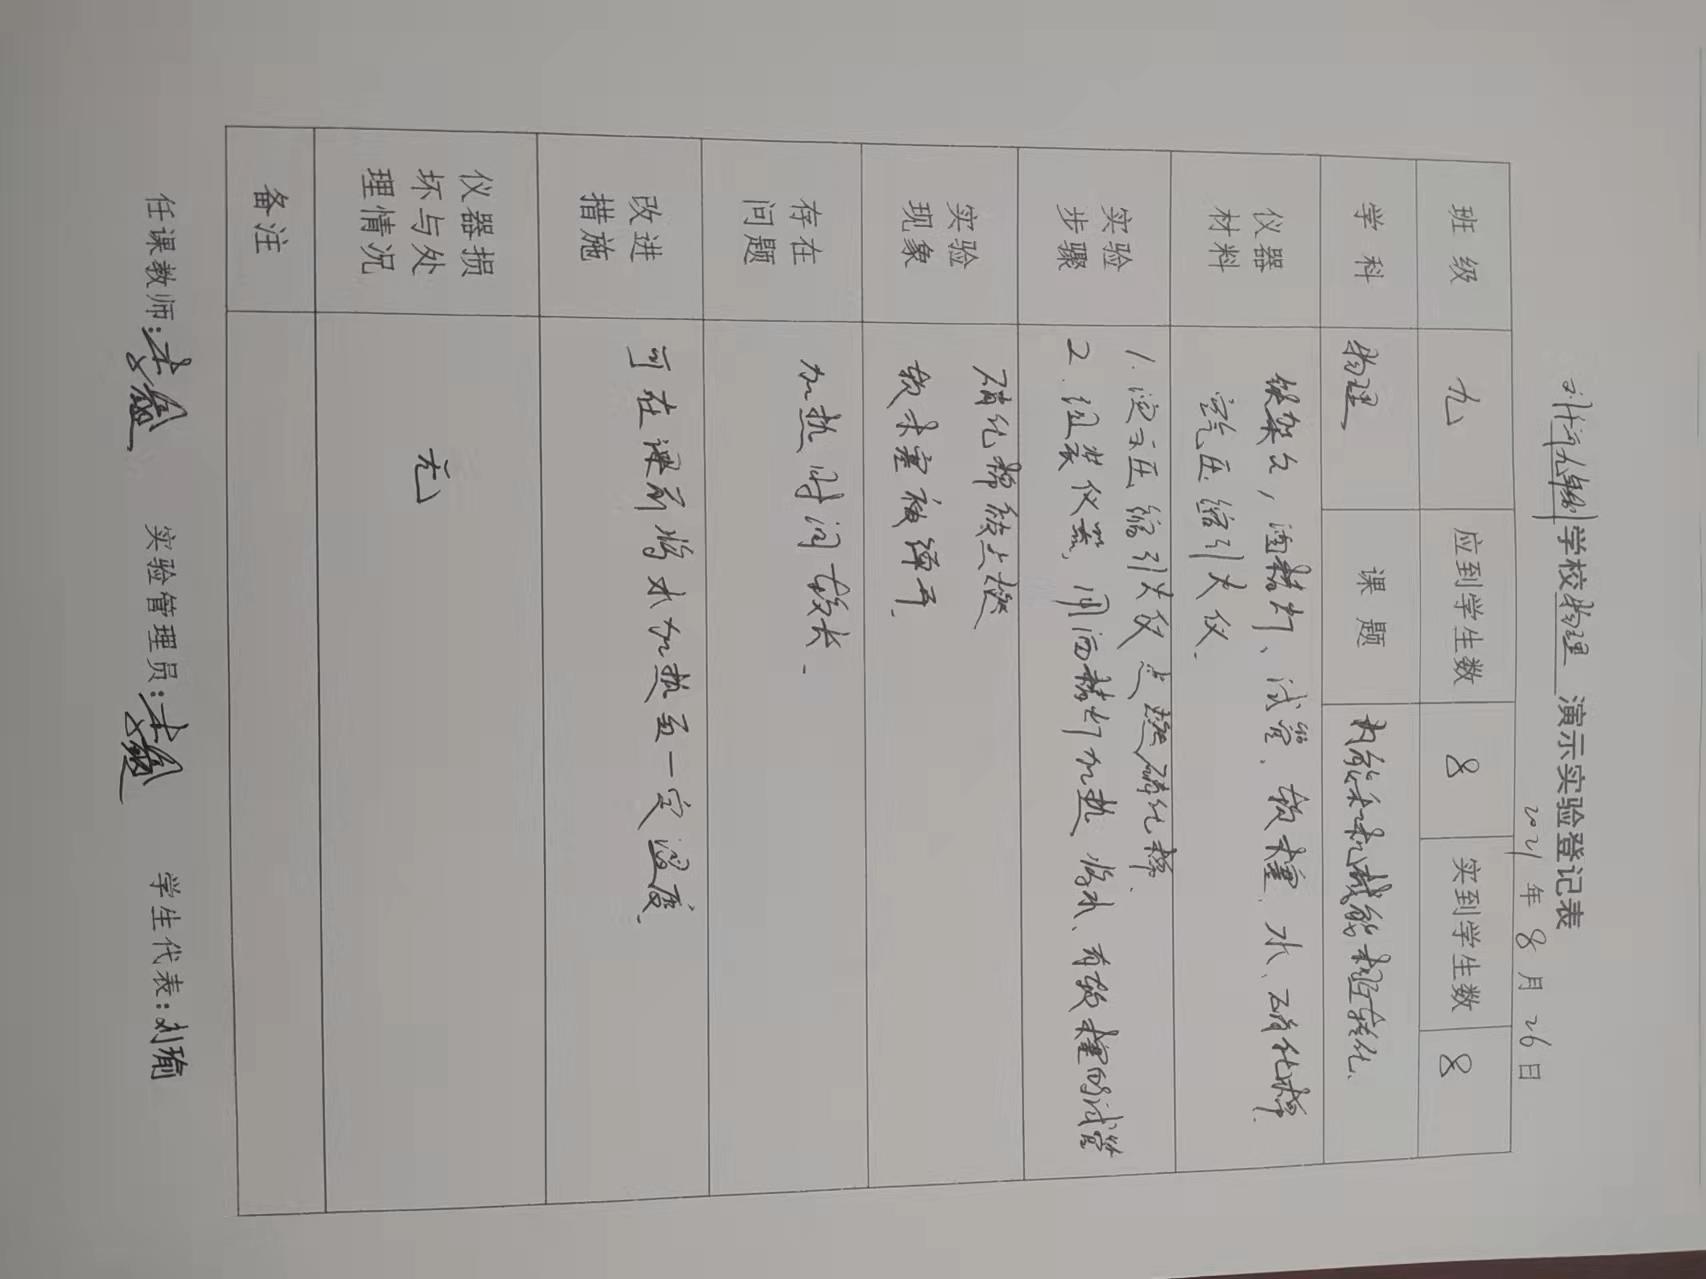 学校物理 演示实验登记表
2021年8月26日
班级 九 应到学生数 8 实到学生数 8
学科 物理 课题 内能和机械能相互转化.
仪器
材料
铁架台，酒精灯、试管、软木塞、水、硝化棉
空气压缩引火仪.
实验
步骤
1. 演示压缩引火仪 点燃硝化棉.
2. 组装仪器, 用酒精灯加热 将水、有软木塞的试管
实验
现象
硝化棉被点燃
软木塞被弹开.
存在
问题
加热时间较长.
改进
措施
可在课前将水加热至一定温度.
仪器损
坏与处
理情况
无
备注
任课教师: 实验管理员: 学生代表:刘瑜